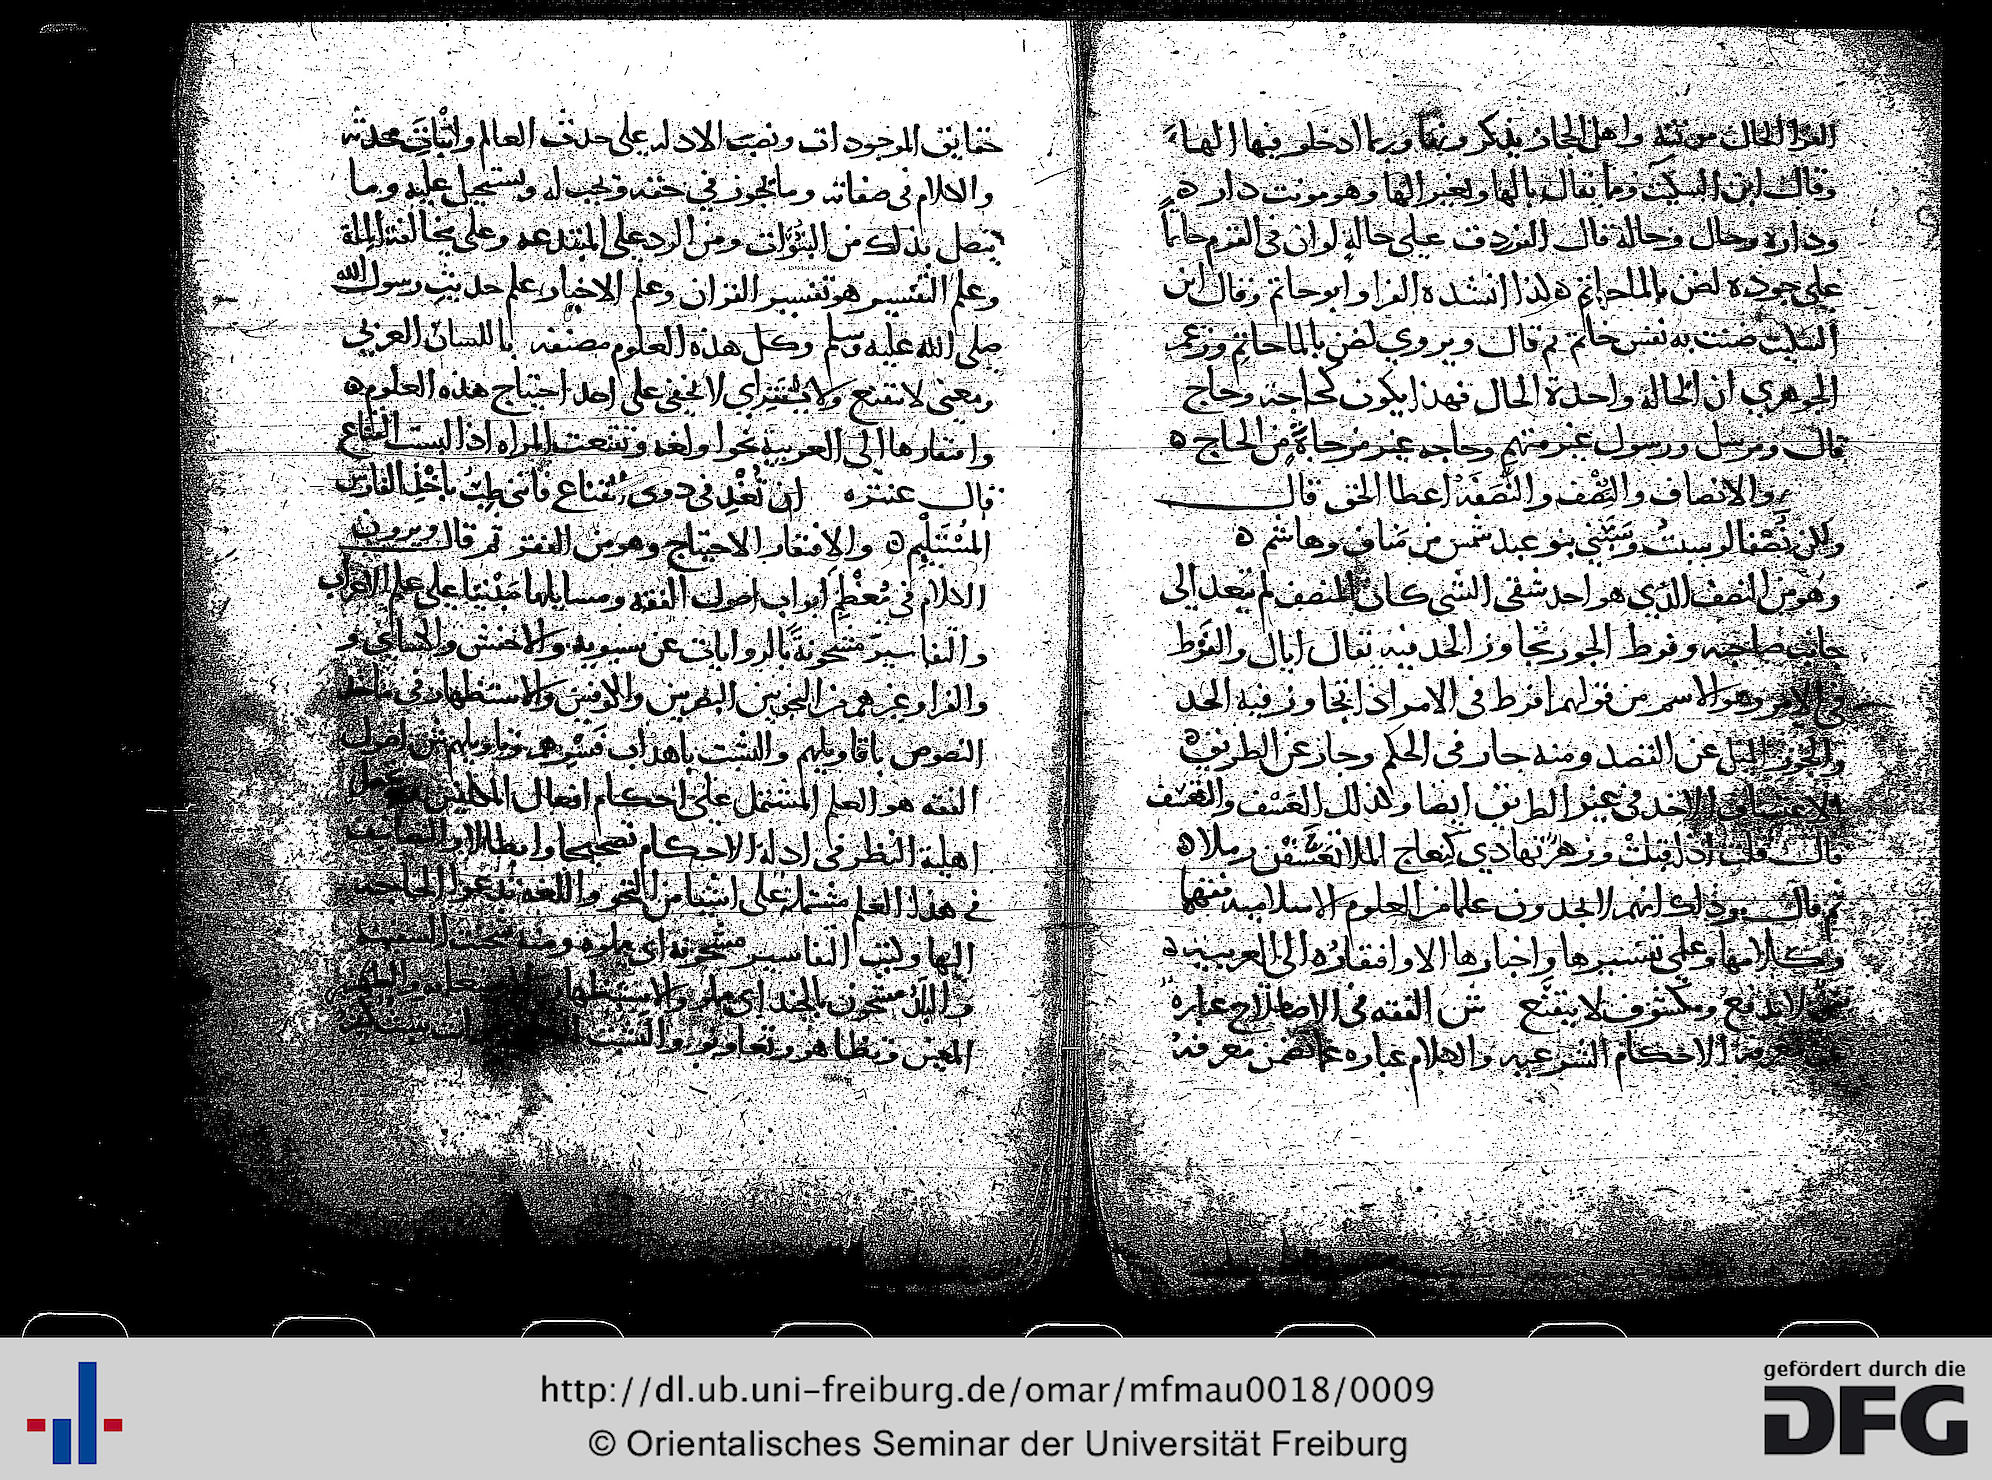 وقال ابن السكيت وما يقال بالها وبغير الها وهو مونث دار
ودارة وحال وحالة قال الفرزدق على حالة لو ان في القوم حاتما
على جوده لضن بالما حاتم كذا انشده الفرا وابو حاتم وقال ابن
السكيت ضنت به نفس حاتم ثم قال ويروى لضن بالما حاتم وزعم
الجوهري ان الحالة واحدة الحال فهذا يكون كحاجة وحاج
قال ومرسل ورسول غير متهم وحاجه غير مزجاة من الحاج
والانصاف والنصف والنصفة اعطا الحق قال
ولكن نصفا لو سببت وسبني بنو عبد شمس من مناف وهاشم
وهو من النصف الذي هو احد شقي الشي كان المنصف لم يتعد الى
جانب صاحبه وفرط الجور تجاوز الحد فيه يقال اياك والفرط
في الامر وهو الاسم من قولهم افرط في الامر اذا تجاوز فيه الحد
والجور الميل عن القصد ومنه جار في الحكم وجار عن الطريق
الاعتساف الاخذ في غير الطريق ايضا وكذلك العسف والتعسف
قال قلت اذ اقبلت وزهر تهادى كنعاج الملا تعسفن رملا
ثم قال وذلك انهم لا يجدون علما من العلوم الاسلامية فقهها
وكلامها وعلمي تفسيرها واخبارها الا وافتقاره الى العربية
لا يدفع ومكشوف لا يتقنع ش الفقه في الاصطلاح عباره
عن معرفة الاحكام الشرعيه والكلام عباره عما تضمن معرفة
حقايق الموجودات ونصب الادله على حدث العالم واثبات محدثه
والكلام في صفاته وما يجوز في حقه ويجب له ويستحيل عليه وما
يتصل بذلك من النبوات ومن الرد على المبتدعه وعلى مخالفة الملة
وعلم التفسير هو تفسير القران وعلم الاخبار علم حديث رسول الله
صلى الله عليه وسلم وكل هذه العلوم مصنفه باللسان العربي
ومعنى لا تقنع ولا تستتر اي لا يخفى على احد احتياج هذه العلوم
وافتقارها الى العربية نحوا ولغه وتقنعت المراه اذا لبست القناع
قال عنترة ان تغدفي دوني القناع فانني طب باخذ الفارس
المستليم والافتقار الاحتياج وهو من الفقر ثم قال ويرون
الكلام في معظم ابواب اصول الفقه ومسايلها مبنيا على علم الاعراب
والتفاسير مشحونة بالروايات عن سيبويه والاخفش والكساي و
والفرا وغيرهم من النحويين البصريين والكوفيين والاستظهار في ماخذ
النصوص باقاويلهم والتشبث باهداب فسرهم وتاويلهم ش اصول
الفقه هو العلم المشتمل على احكام افعال المكلفين
اهلية النظر في ادلة الاحكام تصحيحا وابطالا والتصانيف
في هذا العلم مشتملة على اشيا من النحو واللغه تدعوا الحاجة
اليها وكتب التفاسير مشحونة اي مملوة ومنه شحنت السفينه
والبلد مشحون بالجند اي ملي والاستظهار
المعين وتظاهروا تعاونوا والتشبث
http://dl.ub.uni-freiburg.de/omar/mfmau0018/0009
© Orientalisches Seminar der Universität Freiburg
gefördert durch die
DFG